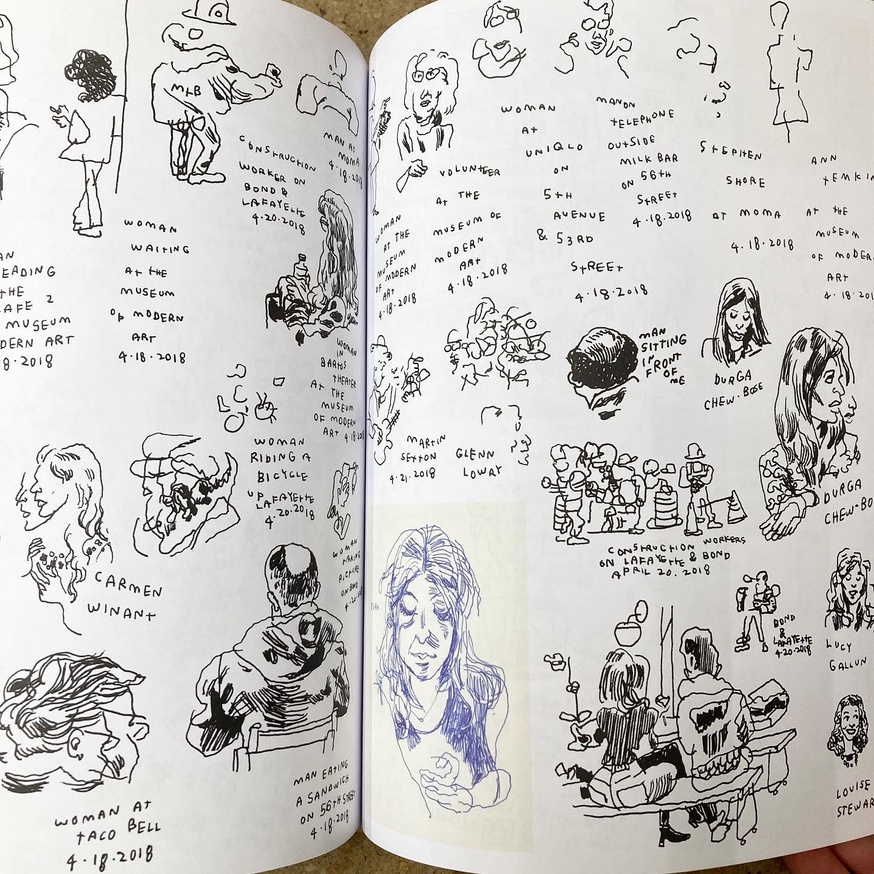 MLB
CONSTRUCTION
WORKER ON
BOND &
LAFAYETTE
4.20.2018
MAN AT
MOMA
4.18.2018
WOMAN
WAITING
AT THE
MUSEUM
OF MODERN
ART
4.18.2018
EADING
THE
AFE 2
MUSEUM
DERN ART
8.2018
WOMAN
IN
BARTOS
THEATER
AT THE
MUSEUM
OF MODERN
ART 4.18.201
WOMAN
RIDING A
BICYCLE
UP LAFAYETTE
4.20.2018
WOMAN
TAKING
4.20
CARMEN
WINANT
WOMAN AT
TACO BELL
4.18.2018
MAN EATING
A SANDWICH
ON 56TH STREET
4.18.2018
WOMAN
AT THE
MUSEUM
OF MODERN
ART
4.18.2018
VOLUNTEER
AT THE
MUSEUM OF
MODERN
ART
4.18.2018
WOMAN
AT
UNIQLO
ON
5TH
AVENUE
& 53RD
STREET
4.18.2018
MAN ON
TELEPHONE
OUTSIDE
MILK BAR
ON 56TH
STREET
4.18.2018
STEPHEN
SHORE
AT MOMA
4.18.2018
ANN
TEMKIN
AT THE
MUSEUM
OF MODERN
ART
4.18.201
MAN
SITTING
IN
FRONT
OF
ME
DURGA
CHEW-BOSE
MARTIN
SEXTON
4.21.2018
GLENN
LOWRY
DURGA
CHEW-BO
CONSTRUCTION WORKERS
ON LAFAYETTE & BOND
APRIL 20. 2018
BOND
&
LAFAYETTE
4.20.2018
LUCY
GALLUN
LOUISE
STEWAR